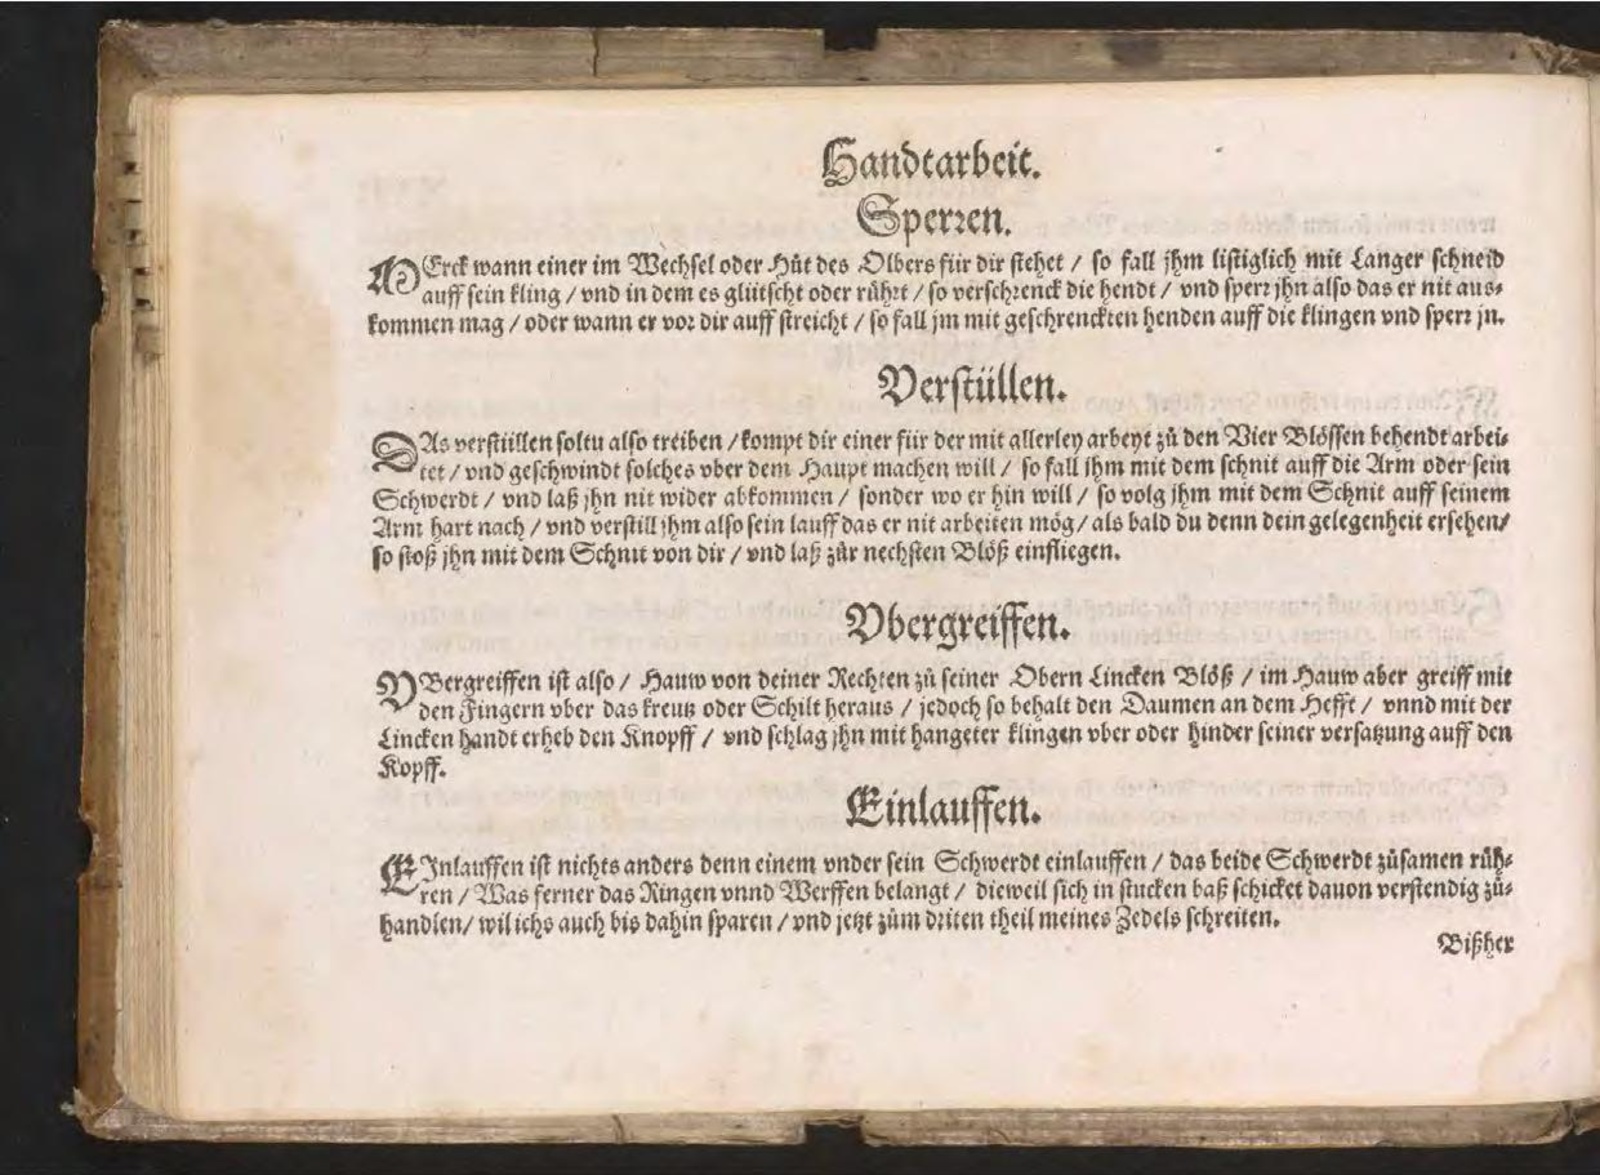 Handtarbeit.
Sperren.
MErck wann einer im Wechsel oder Hůt des Olbers für dir stehet / so fall jhm listiglich mit Langer schneid
auff sein kling / vnd in dem es glütscht oder rührt / so verschrenck die hendt / vnd sperr jhn also das er nit aus-
kommen mag / oder wann er vor dir auff streicht / so fall jm mit geschrenckten henden auff die klingen vnd sperr jn.
Verstüllen.
DAs verstüllen soltu also treiben / kompt dir einer für der mit allerley arbeyt zů den Vier Blössen behendt arbei-
tet / vnd geschwindt solches vber dem Haupt machen will / so fall jhm mit dem schnit auff die Arm oder sein
Schwerdt / vnd laß jhn nit wider abkommen / sonder wo er hin will / so volg jhm mit dem Schnit auff seinem
Arm hart nach / vnd verstill jhm also sein lauff das er nit arbeiten mög / als bald du denn dein gelegenheit ersehen /
so stoß jhn mit dem Schnit von dir / vnd laß zůr nechsten Blöß einfliegen.
Vbergreiffen.
VBergreiffen ist also / Hauw von deiner Rechten zů seiner Obern Lincken Blöß / im Hauw aber greiff mit
den Fingern vber das kreutz oder Schilt heraus / jedoch so behalt den Daumen an dem Hefft / vnnd mit der
Lincken handt erheb den Knopff / vnd schlag jhn mit hangeter klingen vber oder hinder seiner versatzung auff den
Kopff.
Einlauffen.
EInlauffen ist nichts anders denn einem vnder sein Schwerdt einlauffen / das beide Schwerdt zůsamen rüh-
ren / Was ferner das Ringen vnnd Werffen belangt / dieweil sich in stucken baß schicket dauon verstendig zů-
handlen / wil ichs auch bis dahin sparen / vnd jetzt zům driten theil meines Zedels schreiten.
Bißher